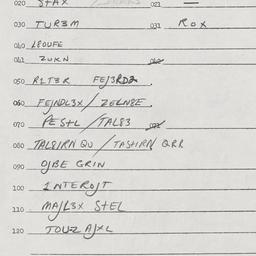 020 STAX 021 —
030 TUR3M 031 ROX
040 L8OUFE
041 ZUKN 042
050 R1T3R FEJ3RD2
060 FEJNDL3X / ZELN8E
070 PEStL / TAL83 071
080 TAL8IRN QU / TASHIRN QRR
090 OJBE GRIN
100 INTEROJT
110 MAJL3X StEL
120 TOUZ AJXL